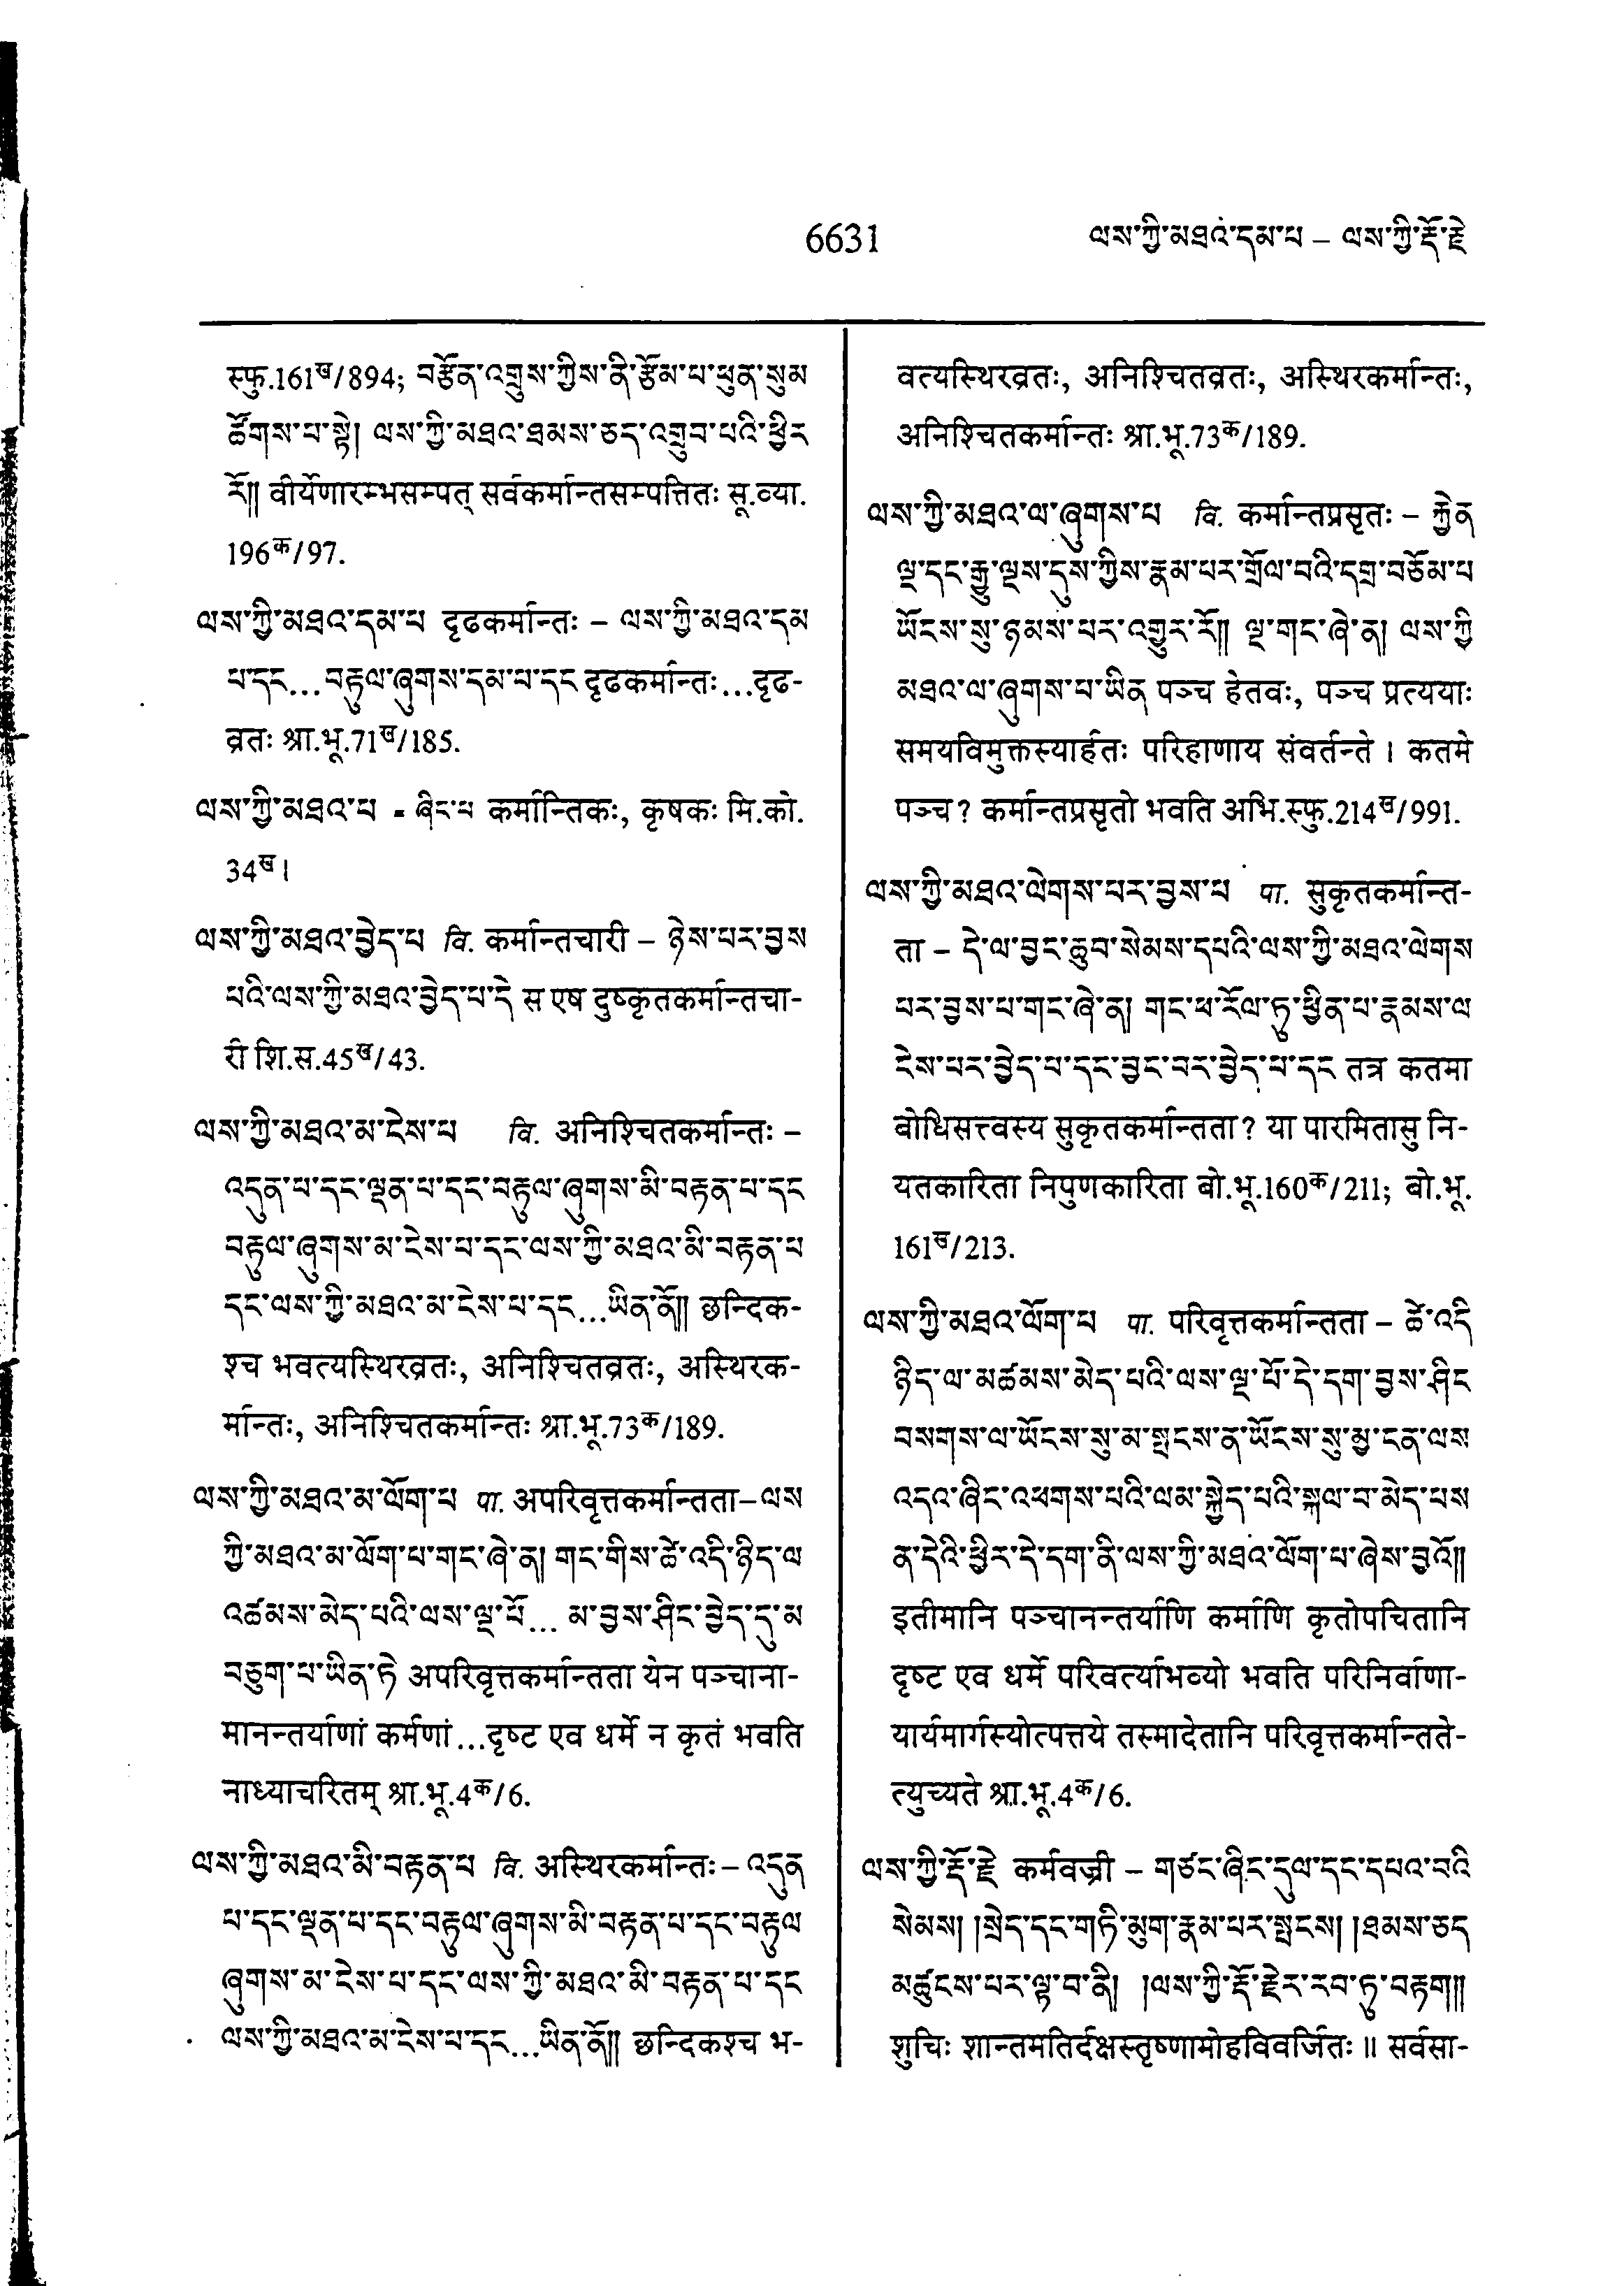 6631
ལས་ཀྱི་མཐའ་དམ་པ – ལས་ཀྱི་རྡོ་རྗེ
स्फु.161ख/894; བརྩོན་འགྲུས་ཀྱིས་ནི་རྩོམ་པ་ཕུན་སུམ
ཚོགས་པ་སྟེ། ལས་ཀྱི་མཐའ་ཐམས་ཅད་འགྲུབ་པའི་ཕྱིར
རོ།། वीर्येणारम्भसम्पत् सर्वकर्मान्तसम्पत्तितः सू.व्या.
196क/97.
ལས་ཀྱི་མཐའ་དམ་པ दृढकर्मान्तः – ལས་ཀྱི་མཐའ་དམ
པ་དང...བརྟུལ་ཞུགས་དམ་པ་དང दृढकर्मान्तः...दृढ-
व्रतः श्रा.भू.71ख/185.
ལས་ཀྱི་མཐའ་པ = ཞིང་པ कर्मान्तिकः, कृषकः मि.को.
34ख।
ལས་ཀྱི་མཐའ་བྱེད་པ वि. कर्मान्तचारी – ཉེས་པར་བྱས
པའི་ལས་ཀྱི་མཐའ་བྱེད་པ་དེ स एष दुष्कृतकर्मान्तचा-
री शि.स.45ख/43.
ལས་ཀྱི་མཐའ་མ་ངེས་པ वि. अनिश्चितकर्मान्तः –
འདུན་པ་དང་ལྡན་པ་དང་བརྟུལ་ཞུགས་མི་བརྟན་པ་དང
བརྟུལ་ཞུགས་མ་ངེས་པ་དང་ལས་ཀྱི་མཐའ་མི་བརྟན་པ
དང་ལས་ཀྱི་མཐའ་མ་ངེས་པ་དང...ཡིན་ནོ།། छन्दिक-
श्च भवत्यस्थिरव्रतः, अनिश्चितव्रतः, अस्थिरक-
र्मान्तः, अनिश्चितकर्मान्तः श्रा.भू.73क/189.
ལས་ཀྱི་མཐའ་མ་ལོག་པ पा. अपरिवृत्तकर्मान्तता–ལས
ཀྱི་མཐའ་མ་ལོག་པ་གང་ཞེ་ན། གང་གིས་ཚེ་འདི་ཉིད་ལ
འཚམས་མེད་པའི་ལས་ལྔ་པོ... མ་བྱས་ཤིང་བྱེད་དུ་མ
བཅུག་པ་ཡིན་ཏེ अपरिवृत्तकर्मान्तता येन पञ्चाना-
मानन्तर्याणां कर्मणां...दृष्ट एव धर्मे न कृतं भवति
नाध्याचरितम् श्रा.भू.4क/6.
ལས་ཀྱི་མཐའ་མི་བརྟན་པ वि. अस्थिरकर्मान्तः – འདུན
པ་དང་ལྡན་པ་དང་བརྟུལ་ཞུགས་མི་བརྟན་པ་དང་བརྟུལ
ཞུགས་མ་ངེས་པ་དང་ལས་ཀྱི་མཐའ་མི་བརྟན་པ་དང
ལས་ཀྱི་མཐའ་མ་ངེས་པ་དང...ཡིན་ནོ།། छन्दिकश्च भ-
वत्यस्थिरव्रतः, अनिश्चितव्रतः, अस्थिरकर्मान्तः,
अनिश्चितकर्मान्तः श्रा.भू.73क/189.
ལས་ཀྱི་མཐའ་ལ་ཞུགས་པ वि. कर्मान्तप्रसृतः – རྐྱེན
ལྔ་དང་རྒྱུ་ལྔས་དུས་ཀྱིས་རྣམ་པར་གྲོལ་བའི་དགྲ་བཅོམ་པ
ཡོངས་སུ་ཉམས་པར་འགྱུར་རོ།། ལྔ་གང་ཞེ་ན། ལས་ཀྱི
མཐའ་ལ་ཞུགས་པ་ཡིན पञ्च हेतवः, पञ्च प्रत्ययाः
समयविमुक्तस्यार्हतः परिहाणाय संवर्तन्ते। कतमे
पञ्च? कर्मान्तप्रसृतो भवति अभि.स्फु.214ख/991.
ལས་ཀྱི་མཐའ་ལེགས་པར་བྱས་པ पा. सुकृतकर्मान्त-
ता – དེ་ལ་བྱང་ཆུབ་སེམས་དཔའི་ལས་ཀྱི་མཐའ་ལེགས
པར་བྱས་པ་གང་ཞེ་ན། གང་ཕ་རོལ་ཏུ་ཕྱིན་པ་རྣམས་ལ
ངེས་པར་བྱེད་པ་དང་བྱང་བར་བྱེད་པ་དང तत्र कतमा
बोधिसत्त्वस्य सुकृतकर्मान्तता? या पारमितासु नि-
यतकारिता निपुणकारिता बो.भू.160क/211; बो.भू.
161ख/213.
ལས་ཀྱི་མཐའ་ལོག་པ पा. परिवृत्तकर्मान्तता – ཚེ་འདི
ཉིད་ལ་མཚམས་མེད་པའི་ལས་ལྔ་པོ་དེ་དག་བྱས་ཤིང
བསགས་ལ་ཡོངས་སུ་མ་སྤངས་ན་ཡོངས་སུ་མྱ་ངན་ལས
འདའ་ཞིང་འཕགས་པའི་ལམ་སྐྱེད་པའི་སྐལ་བ་མེད་པས
ན་དེའི་ཕྱིར་དེ་དག་ནི་ལས་ཀྱི་མཐའ་ལོག་པ་ཞེས་བྱའོ།།
इतीमानि पञ्चानन्तर्याणि कर्माणि कृतोपचितानि
दृष्ट एव धर्मे परिवर्त्याभव्यो भवति परिनिर्वाणा-
यार्यमार्गस्योत्पत्तये तस्मादेतानि परिवृत्तकर्मान्तते-
त्युच्यते श्रा.भू.4क/6.
ལས་ཀྱི་རྡོ་རྗེ कर्मवज्री – གཙང་ཞིང་དུལ་དང་དཔའ་བའི
སེམས། །སྲེད་དང་གཏི་མུག་རྣམ་པར་སྤངས། །ཐམས་ཅད
མཚུངས་པར་ལྟ་བ་ནི། །ལས་ཀྱི་རྡོ་རྗེར་རབ་ཏུ་བརྟག།།
शुचिः शान्तमतिर्दक्षस्तृष्णामोहविवर्जितः॥ सर्वसा-